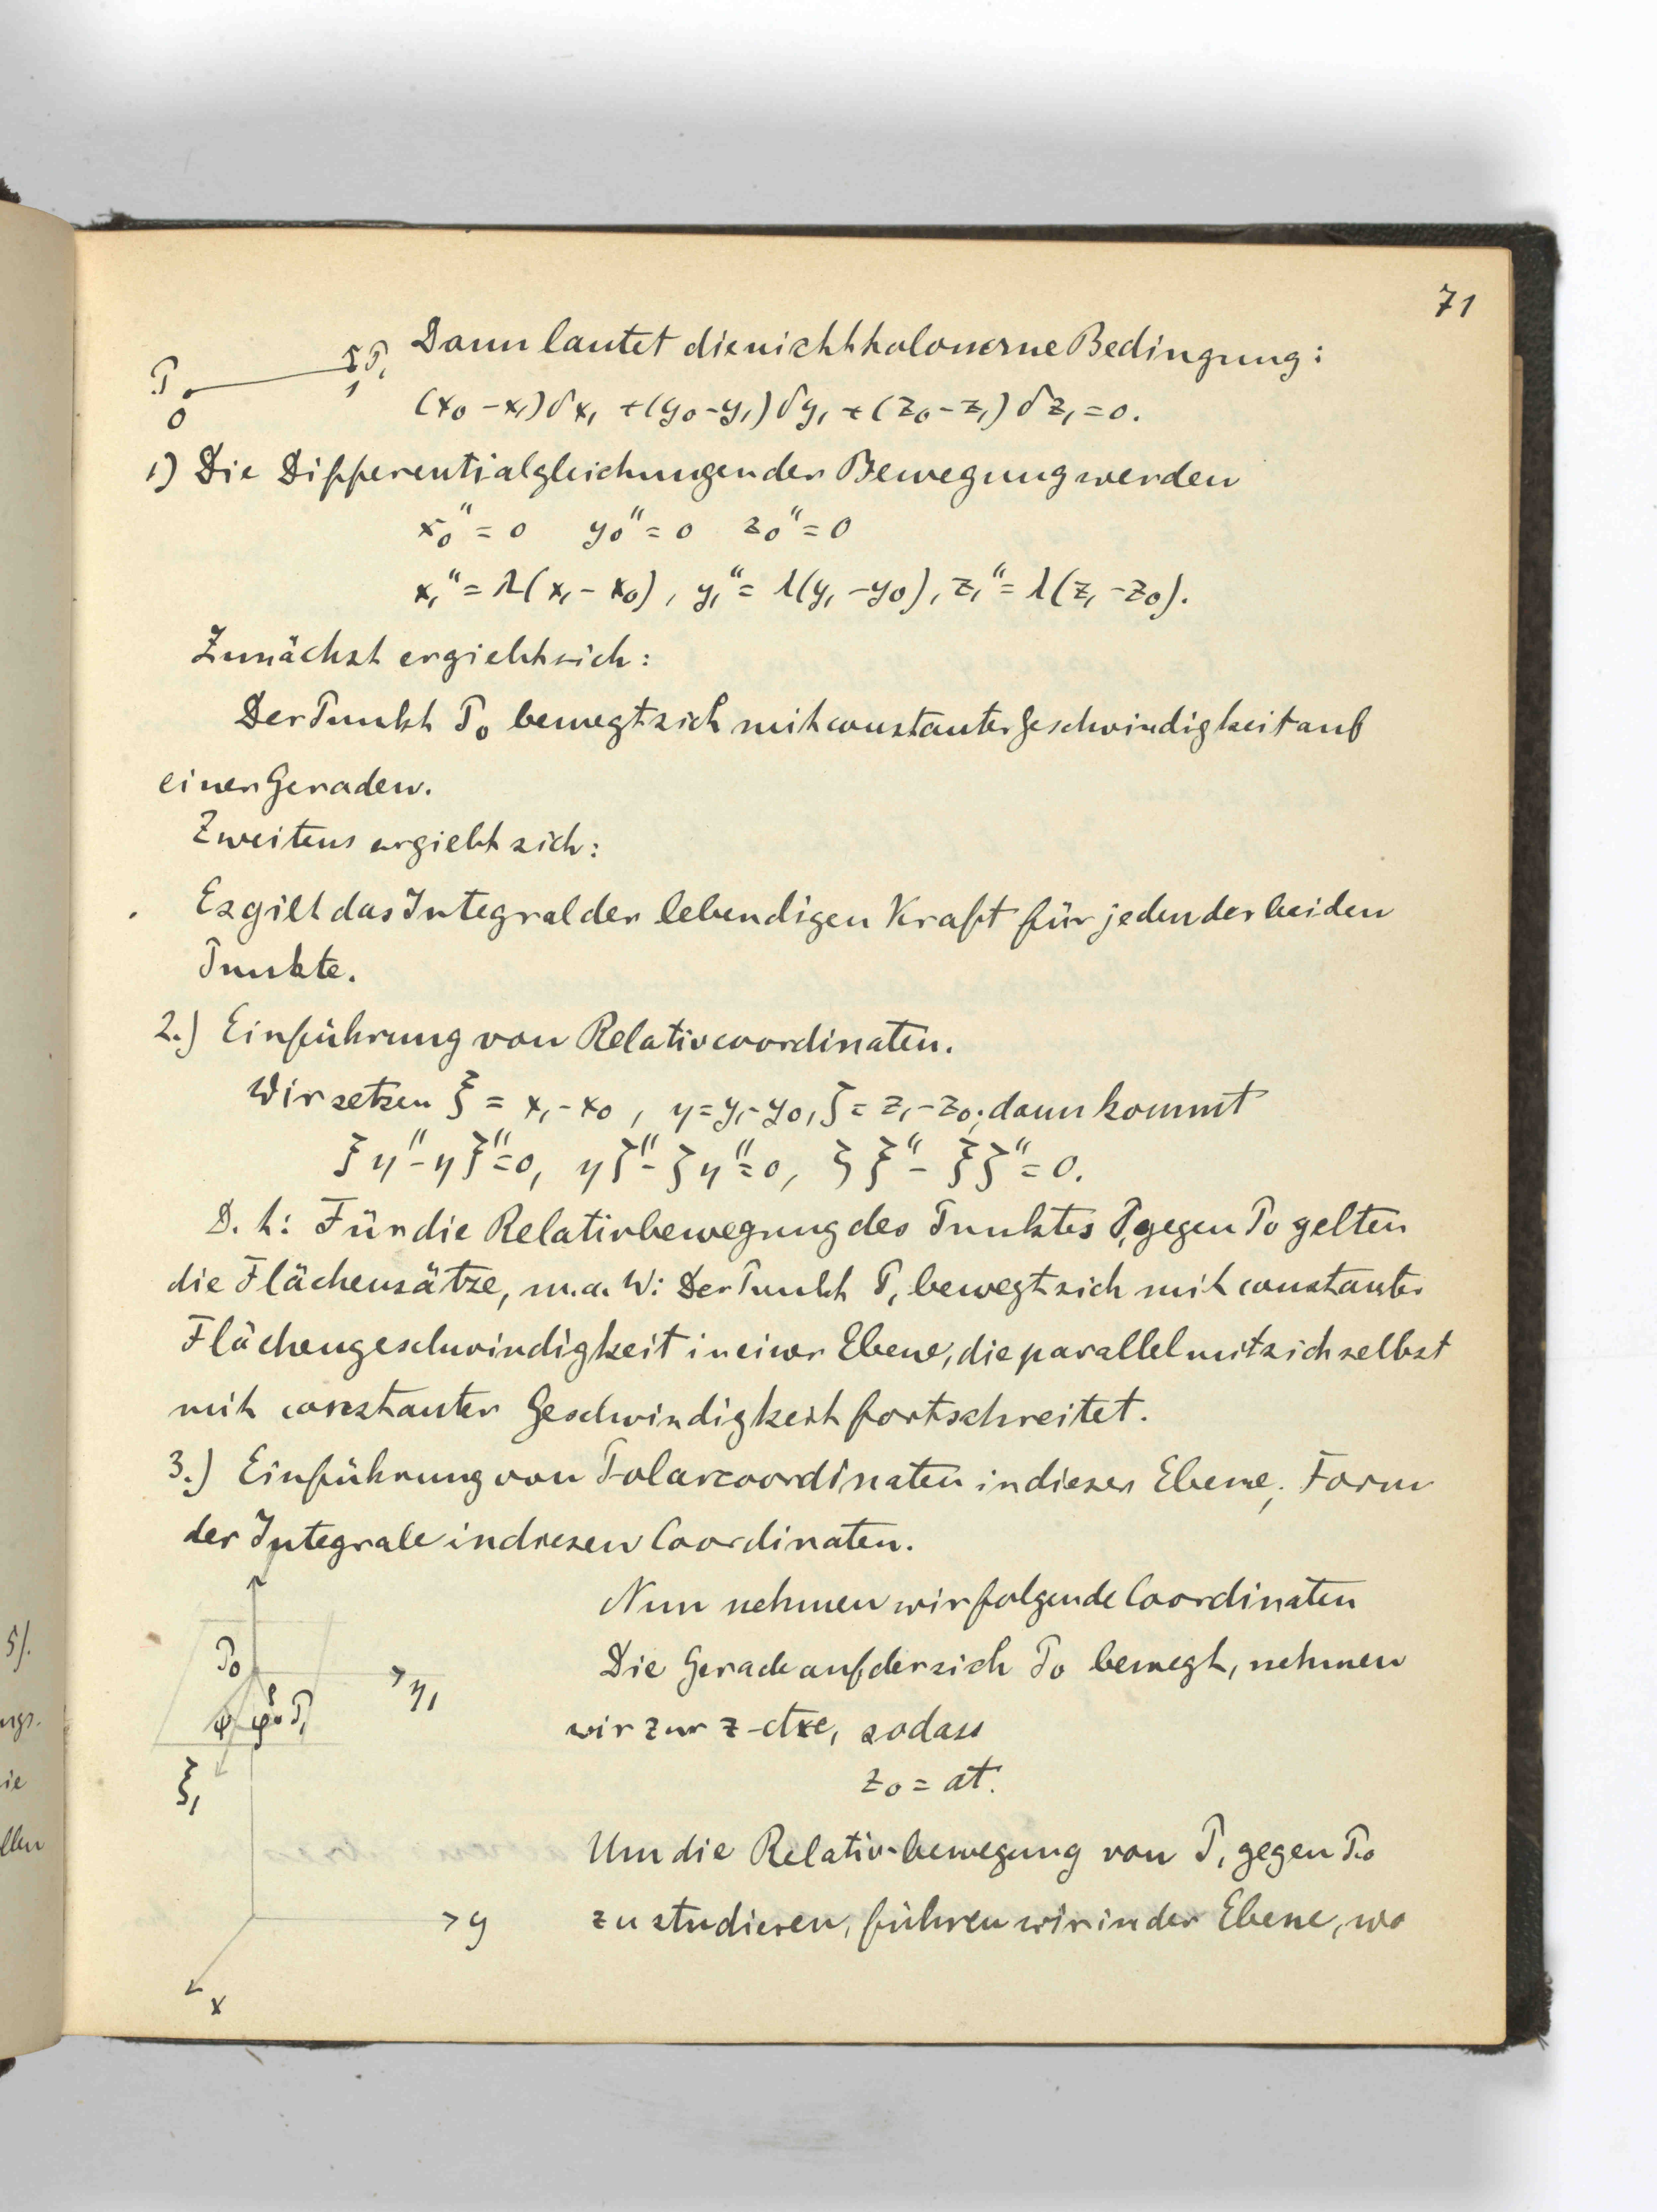 71
P₀ P₁ Dann lautet die nichtholonome Bedingung:
0 1 (x₀ - x₁)δx₁ + (y₀ - y₁)δy₁ + (z₀ - z₁)δz₁ = 0.
1) Die Differentialgleichungen der Bewegung werden
x₀'' = 0 y₀'' = 0 z₀'' = 0
x₁'' = λ(x₁ - x₀), y₁'' = λ(y₁ - y₀), z₁'' = λ(z₁ - z₀).
Zunächst ergiebt sich:
Der Punkt P₀ bewegt sich mit constanter Geschwindigkeit auf
einer Geraden.
Zweitens ergiebt sich:
Es gilt das Integral der lebendigen Kraft für jeden der beiden
Punkte.
2.) Einführung von Relativcoordinaten.
Wir setzen ξ = x₁ - x₀, η = y₁ - y₀, ζ = z₁ - z₀; dann kommt
ξη'' - ηξ'' = 0, ηζ'' - ζη'' = 0, ζξ'' - ξζ'' = 0.
D. h: Für die Relativbewegung des Punktes P₁ gegen P₀ gelten
die Flächensätze, m. a. W: Der Punkt P₁ bewegt sich mit constanter
Flächengeschwindigkeit in einer Ebene, die parallel mit sich selbst
mit constanter Geschwindigkeit fortschreitet.
3.) Einführung von Polarcoordinaten in dieser Ebene; Form
der Integrale in diesen Coordinaten.
Nun nehmen wir folgende Coordinaten
Die Gerade auf der sich P₀ bewegt, nehmen
wir zur z-Axe, sodass
z₀ = at.
Um die Relativbewegung von P₁ gegen P₀
zu studieren, führen wir in der Ebene, wo
P₀
η₁
ρ
ψ φ P₁
ξ₁
y
x
5).
ngs.
ie
llen